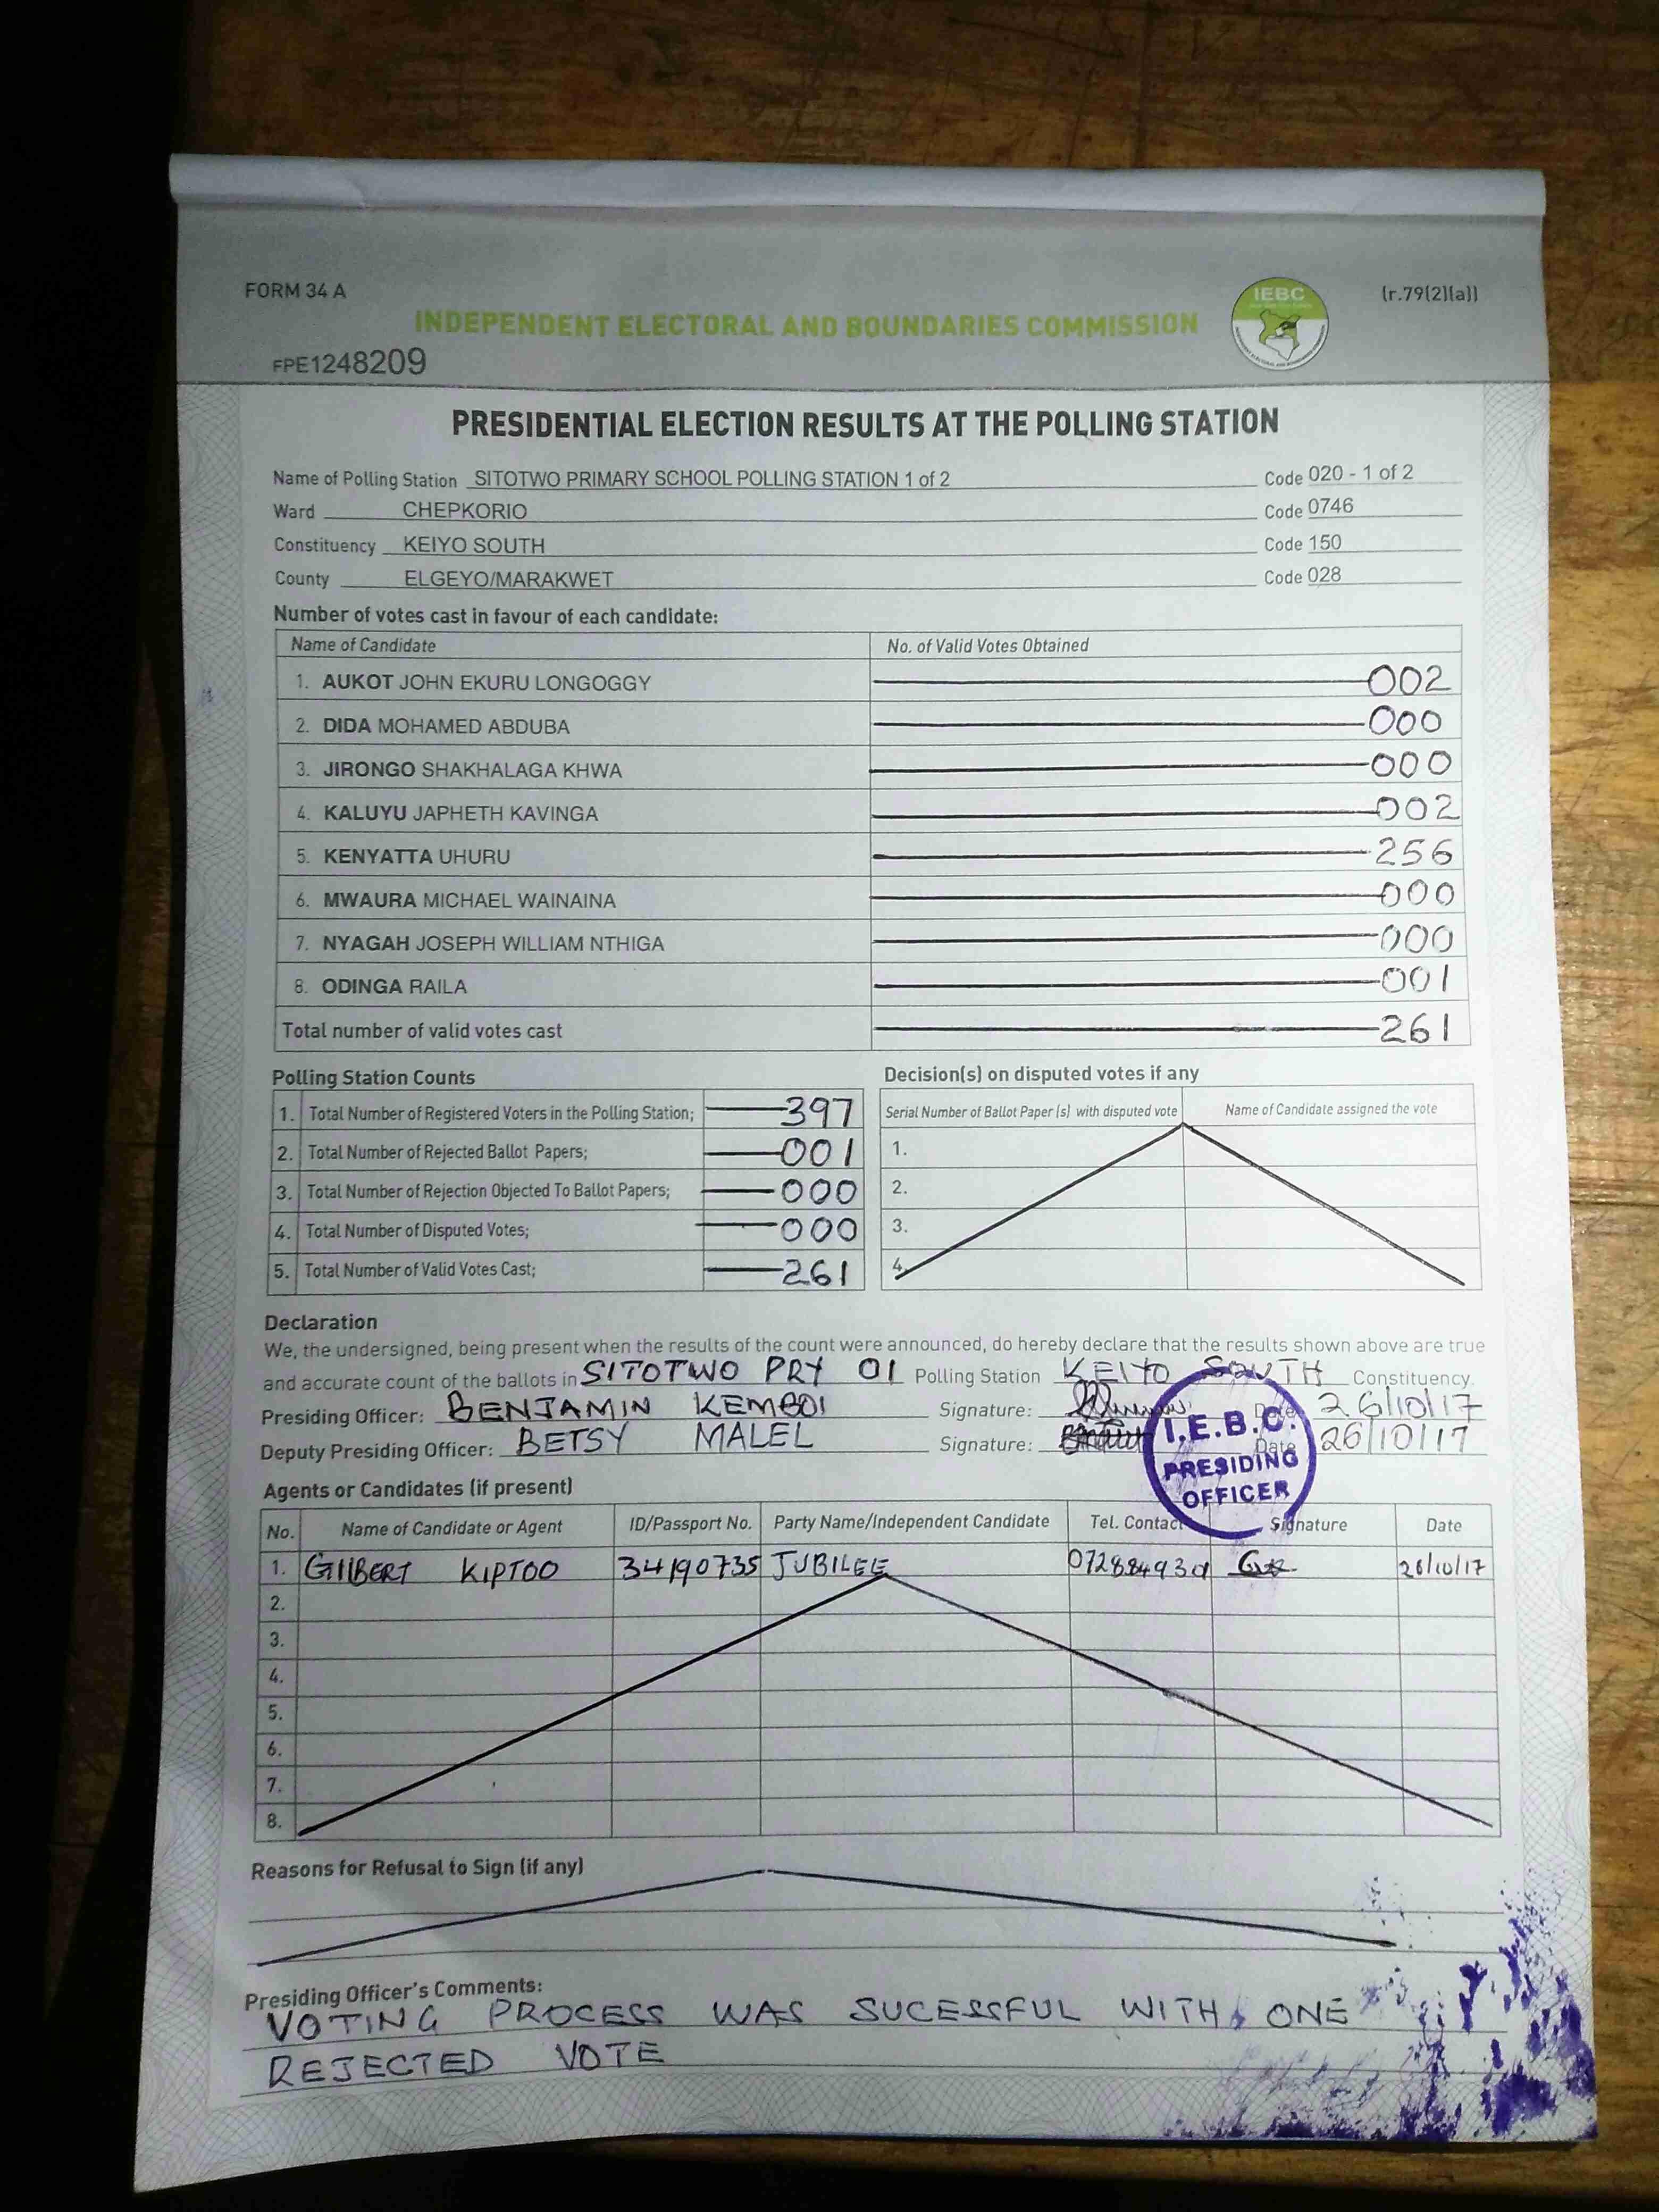 FORM 34 A
(r.79(2)(a))
IEBC
INDEPENDENT ELECTORAL AND BOUNDARIES COMMISSION
FPE1248209
PRESIDENTIAL ELECTION RESULTS AT THE POLLING STATION
Name of Polling Station SITOTWO PRIMARY SCHOOL POLLING STATION 1 of 2 Code 020 - 1 of 2
Ward CHEPKORIO Code 0746
Constituency KEIYO SOUTH Code 150
County ELGEYO/MARAKWET Code 028
Number of votes cast in favour of each candidate:
Name of Candidate No. of Valid Votes Obtained
1. AUKOT JOHN EKURU LONGOGGY 002
2. DIDA MOHAMED ABDUBA 000
3. JIRONGO SHAKHALAGA KHWA 000
4. KALUYU JAPHETH KAVINGA 002
5. KENYATTA UHURU 256
6. MWAURA MICHAEL WAINAINA 000
7. NYAGAH JOSEPH WILLIAM NTHIGA 000
8. ODINGA RAILA 001
Total number of valid votes cast 261
Polling Station Counts
1. Total Number of Registered Voters in the Polling Station; 397
2. Total Number of Rejected Ballot Papers; 001
3. Total Number of Rejection Objected To Ballot Papers; 000
4. Total Number of Disputed Votes; 000
5. Total Number of Valid Votes Cast; 261
Decision(s) on disputed votes if any
Serial Number of Ballot Paper (s) with disputed vote Name of Candidate assigned the vote
1.
2.
3.
4.
Declaration
We, the undersigned, being present when the results of the count were announced, do hereby declare that the results shown above are true
and accurate count of the ballots in SITOTWO PRY 01 Polling Station KEIYO SOUTH Constituency.
Presiding Officer: BENJAMIN KEMBOI Signature: Date 26/10/17
Deputy Presiding Officer: BETSY MALEL Signature: Date 26/10/17
I.E.B.C.
PRESIDING
OFFICER
Agents or Candidates (if present)
No. Name of Candidate or Agent ID/Passport No. Party Name/Independent Candidate Tel. Contact Signature Date
1. GILBERT KIPTOO 34190735 JUBILEE 26/10/17
2.
3.
4.
5.
6.
7.
8.
Reasons for Refusal to Sign (if any)
Presiding Officer's Comments:
VOTING PROCESS WAS SUCESSFUL WITH ONE
REJECTED VOTE